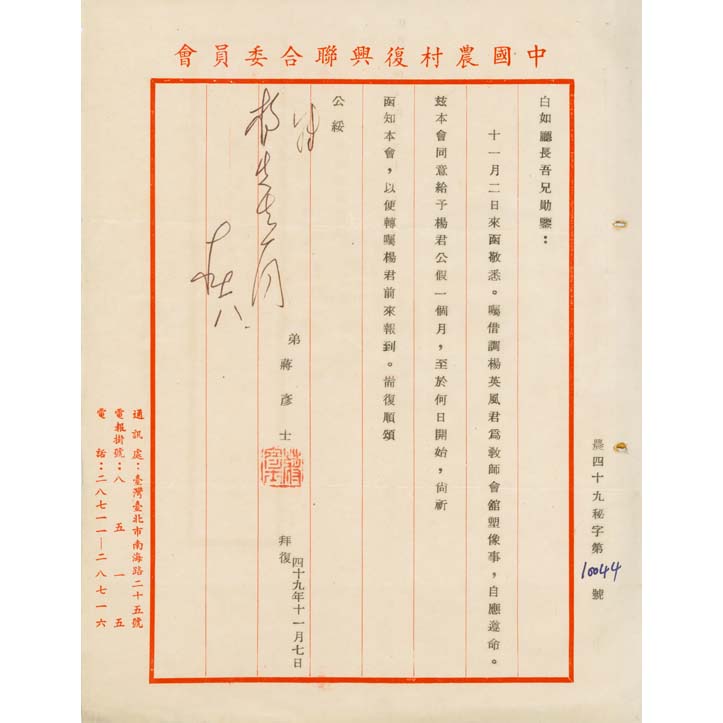 中國農村復興聯合委員會
白如廳長吾兄勛鑒：
十一月二日來函敬悉。囑借調楊英風君為教師會館塑像事，自應遵命。
茲本會同意給予楊君公假一個月，至於何日開始，尚祈
函知本會，以便轉囑楊君前來報到。耑復順頌
公綏
弟 蔣彥士
拜復
四十九年十一月七日
農四十九秘字第10044號
通訊處：臺灣臺北市南海路二十五號
電報掛號：八五一五
電話：二八七一一—二八七一六